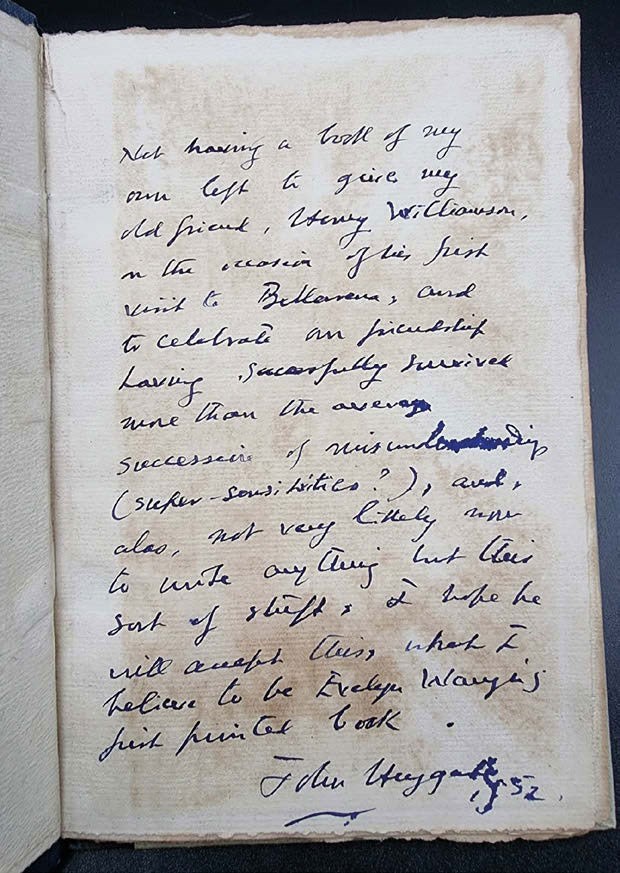 Not having a book of my
own left to give my
old friend, Henry Williamson,
on the occasion of his first
visit to Bellarena, and
to celebrate our friendship
having successfully survived
more than the average
succession of misunderstandings
(super-sensibilities?), and,
also, not very likely now
to write anything but this
sort of stuff, I hope he
will accept this, what I
believe to be Evelyn Waugh's
first printed book.
John Heygate
1952.